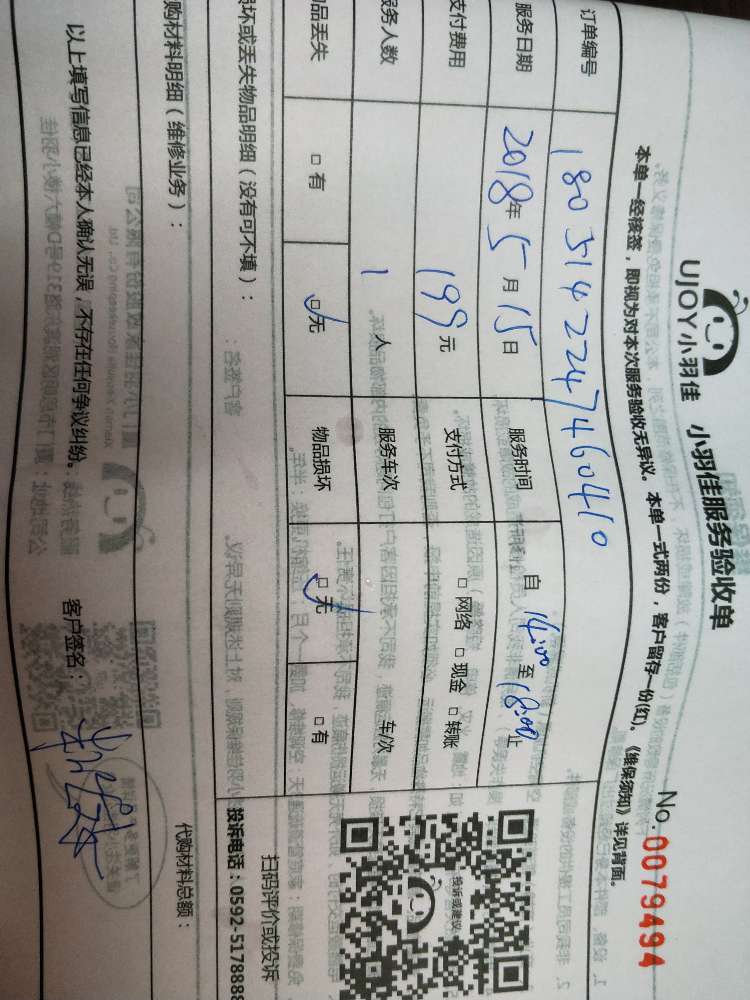 UJOY小羽佳 小羽佳服务验收单
No.0079494
本单一经核签,即视为对本次服务验收无异议。本单一式两份,客户留存一份(红)。《维保须知》详见背面。
订单编号 180514224746041 0
服务日期 2018年5月15日 服务时间 自14:00至18:00止
支付费用 199元 支付方式 □网络 □现金 □转账
服务人数 1人 服务车次 车/次
物品丢失 □有 □无 物品损坏 □无 □有
损坏或丢失物品明细(没有可不填):
投诉或建议
扫码评价或投诉
投诉电话:0592-5178888
购材料明细(维修业务):
代购材料总额:
以上填写信息已经本人确认无误,不存在任何争议纠纷。 客户签名: